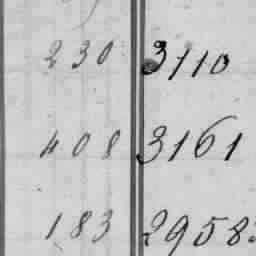 230 3110
408 3161
183 2958